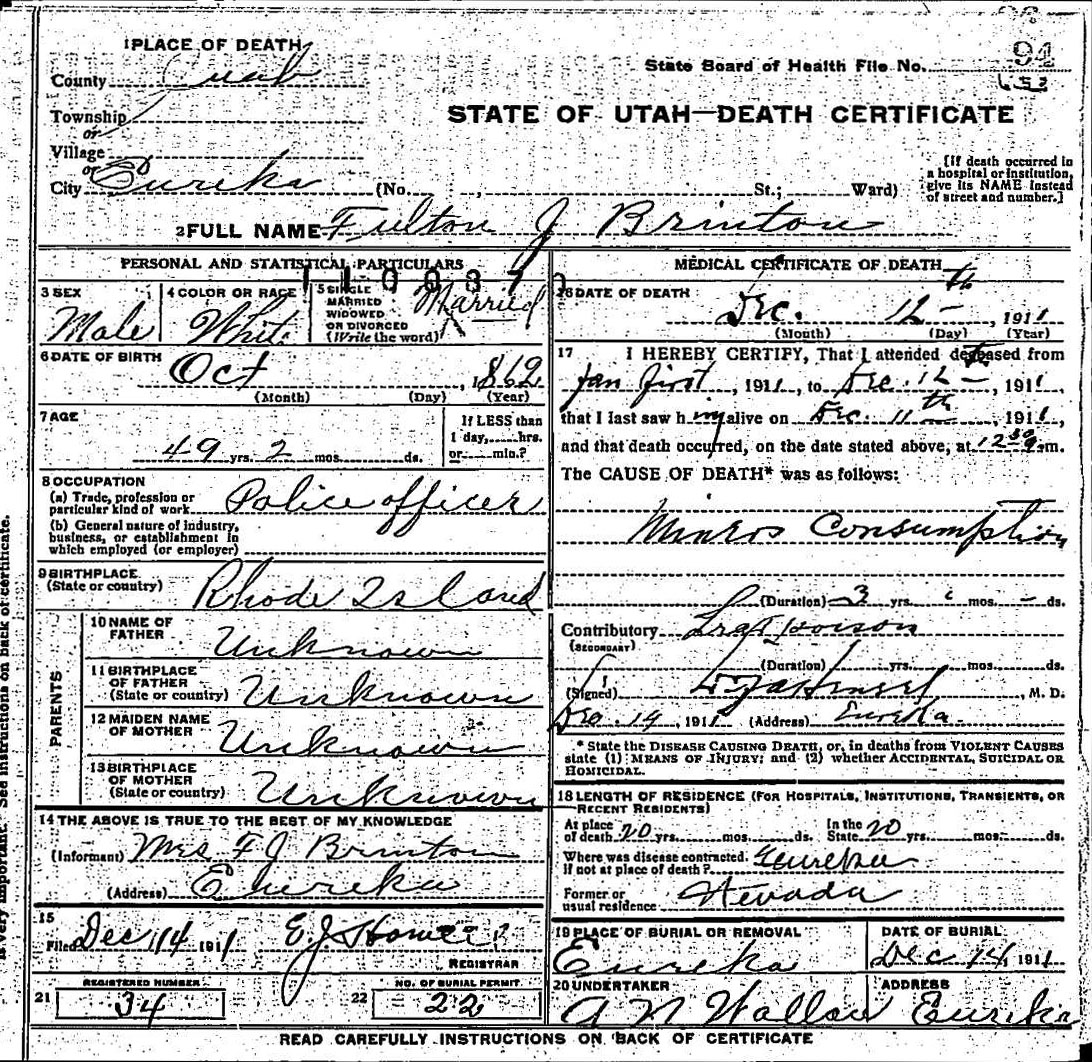 1 PLACE OF DEATH
County Juab
State Board of Health File No. 94
Township
or
Village
or
City Eureka (No. , St.; Ward)
STATE OF UTAH—DEATH CERTIFICATE
[If death occurred in
a hospital or institution,
give its NAME instead
of street and number.]
2 FULL NAME Fulton J Brinton
PERSONAL AND STATISTICAL PARTICULARS
3 SEX
Male
4 COLOR OR RACE
White
5 SINGLE
MARRIED
WIDOWED
OR DIVORCED
(Write the word)
Married
6 DATE OF BIRTH
Oct , 1862
(Month) (Day) (Year)
7 AGE
49 yrs. 2 mos. ds.
If LESS than
1 day, hrs.
or min.?
8 OCCUPATION
(a) Trade, profession or
particular kind of work Police officer
(b) General nature of industry,
business, or establishment in
which employed (or employer)
9 BIRTHPLACE
(State or country) Rhode Island
PARENTS
10 NAME OF
FATHER Unknown
11 BIRTHPLACE
OF FATHER
(State or country) Unknown
12 MAIDEN NAME
OF MOTHER Unknown
13 BIRTHPLACE
OF MOTHER
(State or country) Unknown
14 THE ABOVE IS TRUE TO THE BEST OF MY KNOWLEDGE
(Informant) Mrs F J Brinton
(Address) Eureka
15
Filed Dec 14 1911 E.J. Howe
REGISTRAR
21 REGISTERED NUMBER
34
22 NO. OF BURIAL PERMIT
22
MEDICAL CERTIFICATE OF DEATH
16 DATE OF DEATH
Dec. 12th , 1911
(Month) (Day) (Year)
17 I HEREBY CERTIFY, That I attended deceased from
Jan first , 1911, to Dec. 12th , 1911,
that I last saw him alive on Dec. 11th , 1911,
and that death occurred, on the date stated above, at 12 30 a m.
The CAUSE OF DEATH* was as follows:
Minros Consumption
(Duration) 3 yrs. mos. – ds.
Contributory
(SECONDARY)
(Duration) yrs. mos. ds.
(Signed) M. D.
Dec. 14, 1911 (Address) Eureka
* State the DISEASE CAUSING DEATH, or, in deaths from VIOLENT CAUSES
state (1) MEANS OF INJURY; and (2) whether ACCIDENTAL, SUICIDAL OR
HOMICIDAL.
18 LENGTH OF RESIDENCE (FOR HOSPITALS, INSTITUTIONS, TRANSIENTS, OR
RECENT RESIDENTS)
At place
of death 20 yrs. mos. ds.
In the
State 20 yrs. mos. ds.
Where was disease contracted,
If not at place of death? Eureka
Former or
usual residence Nevada
19 PLACE OF BURIAL OR REMOVAL
Eureka
DATE OF BURIAL
Dec 14, 1911
20 UNDERTAKER
A N Wallace
ADDRESS
Eureka
READ CAREFULLY INSTRUCTIONS ON BACK OF CERTIFICATE
is very important. See instructions on back of certificate.